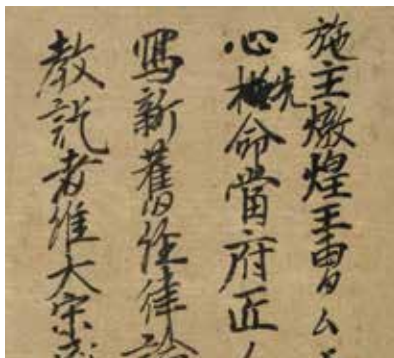 施主燉煌王曹厶
心先命當府匠人
寫新舊經律論
教訖者維大宋咸